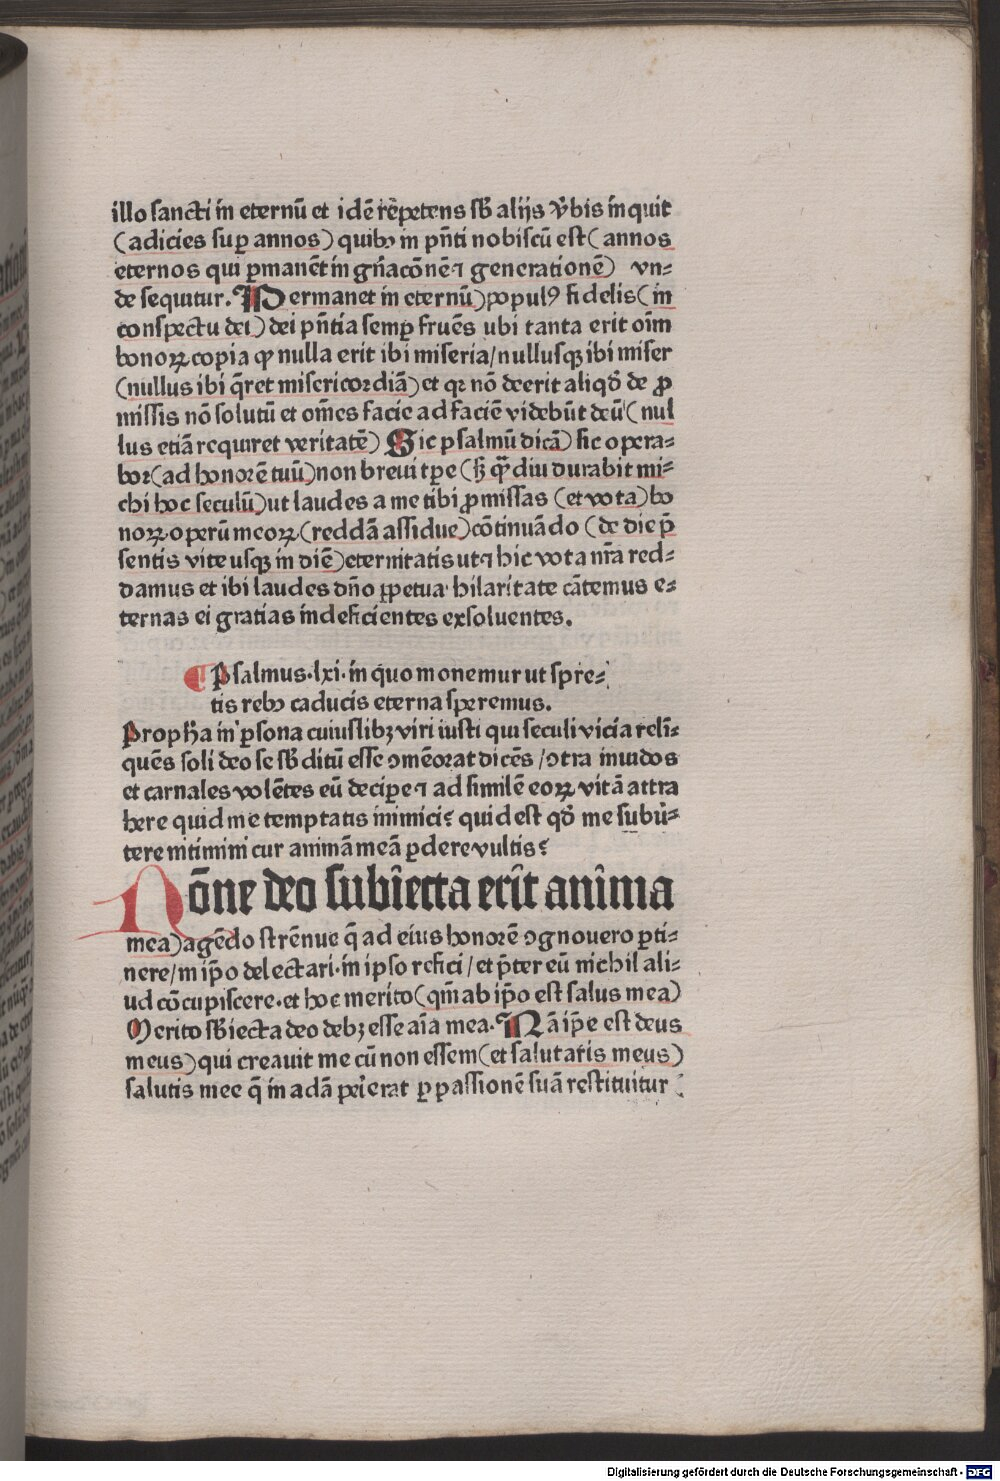 illo sancti in eternū et idē rēpetens sƀ alijs v̄bis inquit
(adicies suꝑ annos) quibꝰ in pn̄ti nobiscū est (annos
eternos qui ꝑmanēt in gn̄acōnē ⁊ generationē) vn⸗
de sequitur. Permanet in eternū) populꝰ fidelis (in
conspectu dei) dei pn̄tia semꝑ fruēs ubi tanta erit oīm
bonoꝝ copia ꝙ nulla erit ibi miseria / nullusqꝫ ibi miser
(nullus ibi q̄ret misericordiā) et qꝛ nō deerit aliqd̄ de ꝓ
missis nō solutū et om̄es facie ad faciē videbūt deū (nul
lus etiā requiret veritatē) Sic psalmū dicā) sic opera⸗
bor (ad honorē tuū) non breui tꝑe (sꝫ qᷓ̄diu durabit mi⸗
chi hoc seculū) ut laudes a me tibi ꝓmissas (et vota) bo
noꝝ operū meoꝝ (reddā assidue) cōtinuādo (de die p̄
sentis vite usqꝫ in diē) eternitatis ut ⁊ hic vota nr̄a red⸗
damus et ibi laudes dn̄o ꝑpetua hilaritate cātemus e⸗
ternas ei gratias indeficientes exsoluentes.
¶ Psalmus .lxi. in quo monemur ut spre⸗
tis rebꝰ caducis eterna speremus.
Propħa in ꝑsona cuiuslibꝫ viri iusti qui seculi vicia relī⸗
quēs soli deo se sƀditū esse ꝯmēorat dicēs / ꝯtra inuidos
et carnales volētes eū deciꝑe ⁊ ad similē eoꝝ vitā attra
here quid me temptatis inimici? quid est qd̄ me subū⸗
tere nitimini cur animā meā ꝑdere vultis?
Nōne deo subiecta erit anima
mea) agēdo strēnue q̄ ad eius honorē ꝯgnouero ꝑti⸗
nere / in ip̄o delectari. in ipso refici / et p̄ter eū nichil ali⸗
ud cōcupiscere. et hoc merito (qm̄ ab ip̄o est salus mea)
Merito sƀiecta deo debꝫ esse aīa mea. Nā ip̄e est deus
meus) qui creauit me cū non essem (et salutaris meus)
salutis mee q̄ in adā perierat ꝑ passionē suā restituitur
Digitalisierung gefördert durch die Deutsche Forschungsgemeinschaft - DFG